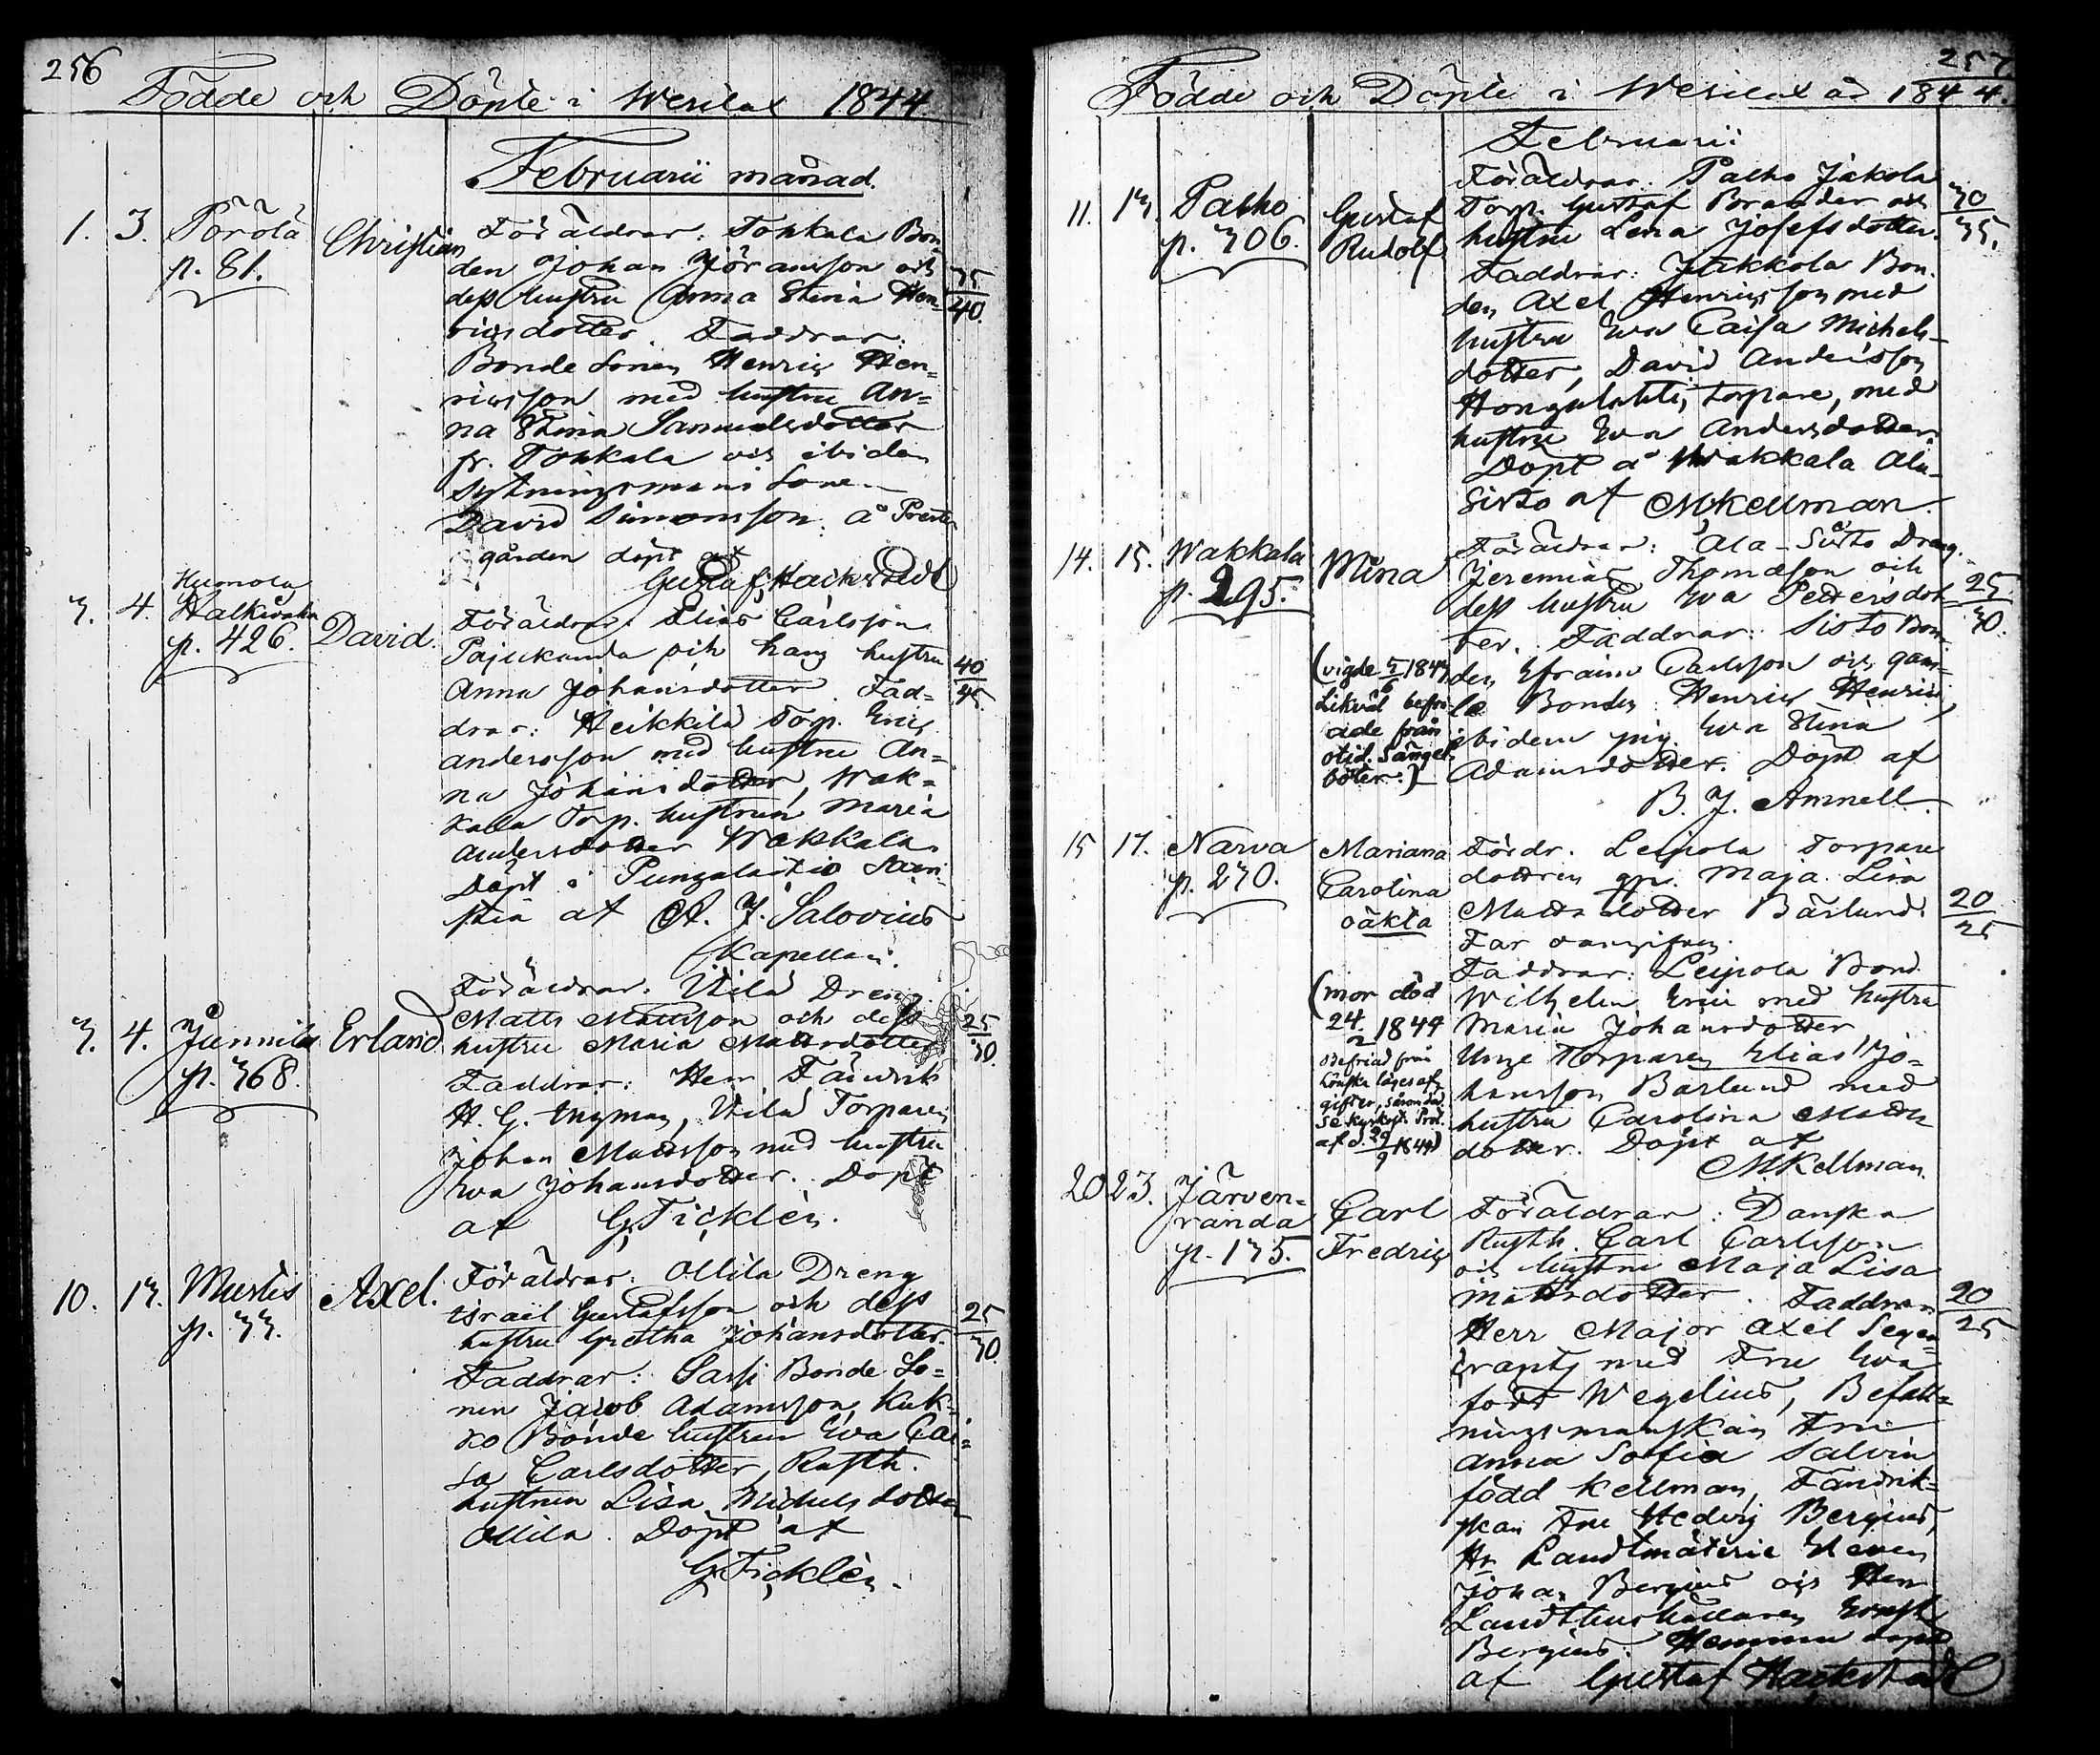 256
Födde och Döpte i Wesilax 1844
Februarii månad.
1. 3. Pörölä
p. 81.
Christian
Föräldrar: Tonkala Bon
den Johan Jöransson och
dess hustru Anna Stina Hen=
ricsdotter. Faddrar:
35
40.
Bonde Sonen Henric Hen=
ricsson med hustru An=
na Stina Samuelsdotter
fr. Tonkala och ibidem
Sytningsmans Sone
David Simonsson. å Preste
gården döpt af
Gustaf Hackstedt
3. 4. Humola
Halkivaha
p. 426.
David.
Föräldrar: Elias Carlsson
Pajukanda och hans hustru
Anna Johansdotter. Fad=
40
45.
drar: Heikkilä Torp. Eric
Andersson med hustru An=
na Johansdotter, Wak=
kala Torp. hustrun Maria
Andersdotter Wakkala.
Döpt i Pungalaitio
af A. J. Salovius
Kapellan.
3. 4. Junnila
p. 368.
Erland
Föräldrar: Utila Dreng
Matts Mattsson och dess
hustru Maria Mattsdotter
25
30.
Faddrar: Herr Fändrik
H. G. Ingman, Utila Torparen
Johan Mattsson med hustru
Eva Johansdotter. Döpt
af G. Ticklén.
10. 13. Murtis
p. 33.
Axel.
Föräldrar: Ollila Dreng
Israel Gustafsson och dess
hustru Gretha Johansdotter.
25
30.
Faddrar: Sarsi Bonde So=
nen Jacob Adamsson, Kuk=
ko Bonde hustrun Eva Cai=
sa Carlsdotter, Rusth.
hustrun Lisa Michelsdotter
Ollila. Döpt af
G. Ticklén.
257
Födde och Döpte i Wesilax år 1844.
Februarii
11. 13. Palho
p. 306.
Gustaf
Rudolf
Föräldrar: Palho Jakola
Torp. Gustaf Brander och
hustru Lena Josefsdotter.
30
35.
Faddrar: Jakkola Bon=
den Axel Henricsson med
hustru Eva Caisa Michels=
dotter, David Andersson
Hongulahti, torpare, med
hustru Eva Andersdotter.
Döpt å Wakkala Ala=
Sisto af M. Kellman.
14. 15. Wakkala
p. 295.
Mina
(vigde 5/6 1843
Likväl befri=
ade från
otid. Sänge=
böter.)
Föräldrar: Ala-Sisto Dreng
Jeremias Thomasson och
dess hustru Eva Pettersdot=
ter. Faddrar: Sisto Bon=
25
30.
den Efraim Carlsson och gam=
le Bonden Henric Henrics,
ibidem pig. Eva Stina
Adamsdotter. Döpt af
B. J. Amnell.
15 17. Narva
p. 230.
Mariana
Carolina
oäkta
(mor död
24/2 1844
Befriad från
se Kyrkoh. Prot.
af d. 29/9 1844)
Fördr. Leipola Torpare
dottren Maja Lisa
Mattsdotter Bärlund.
20
25
Far oangifven.
Faddrar: Leipola Bond.
Wilhelm Eric med hustru
Maria Johansdotter
Unge Torparen Elias Jo=
hansson Bärlund med
hustru Carolina Matts
dotter. Döpt af
M. Kellman.
20 23. Järven=
randa
p. 135.
Carl
Fredric
Föräldrar: Danska
Rusth. Carl Carlsson
och hustru Maja Lisa
Mattsdotter. Faddrar
20
25
Herr Major Axel Segen
crantz med Fru Eva
född Wegelius, Befall=
ningsmanskan Fru
Anna Sofia Salvin
född Kellman, Fändrik=
skan Fru Hedvig Bergius,
Hr Landtmäterie Eleven
Johan Bergius och Herr
Landthushållaren Ernst
Bergius. Hemma döpt
af Gustaf Hackstedt